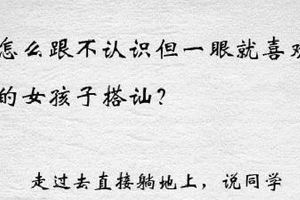 怎么跟不认识但一眼就喜欢
的女孩子搭讪？
走过去直接躺地上，说同学